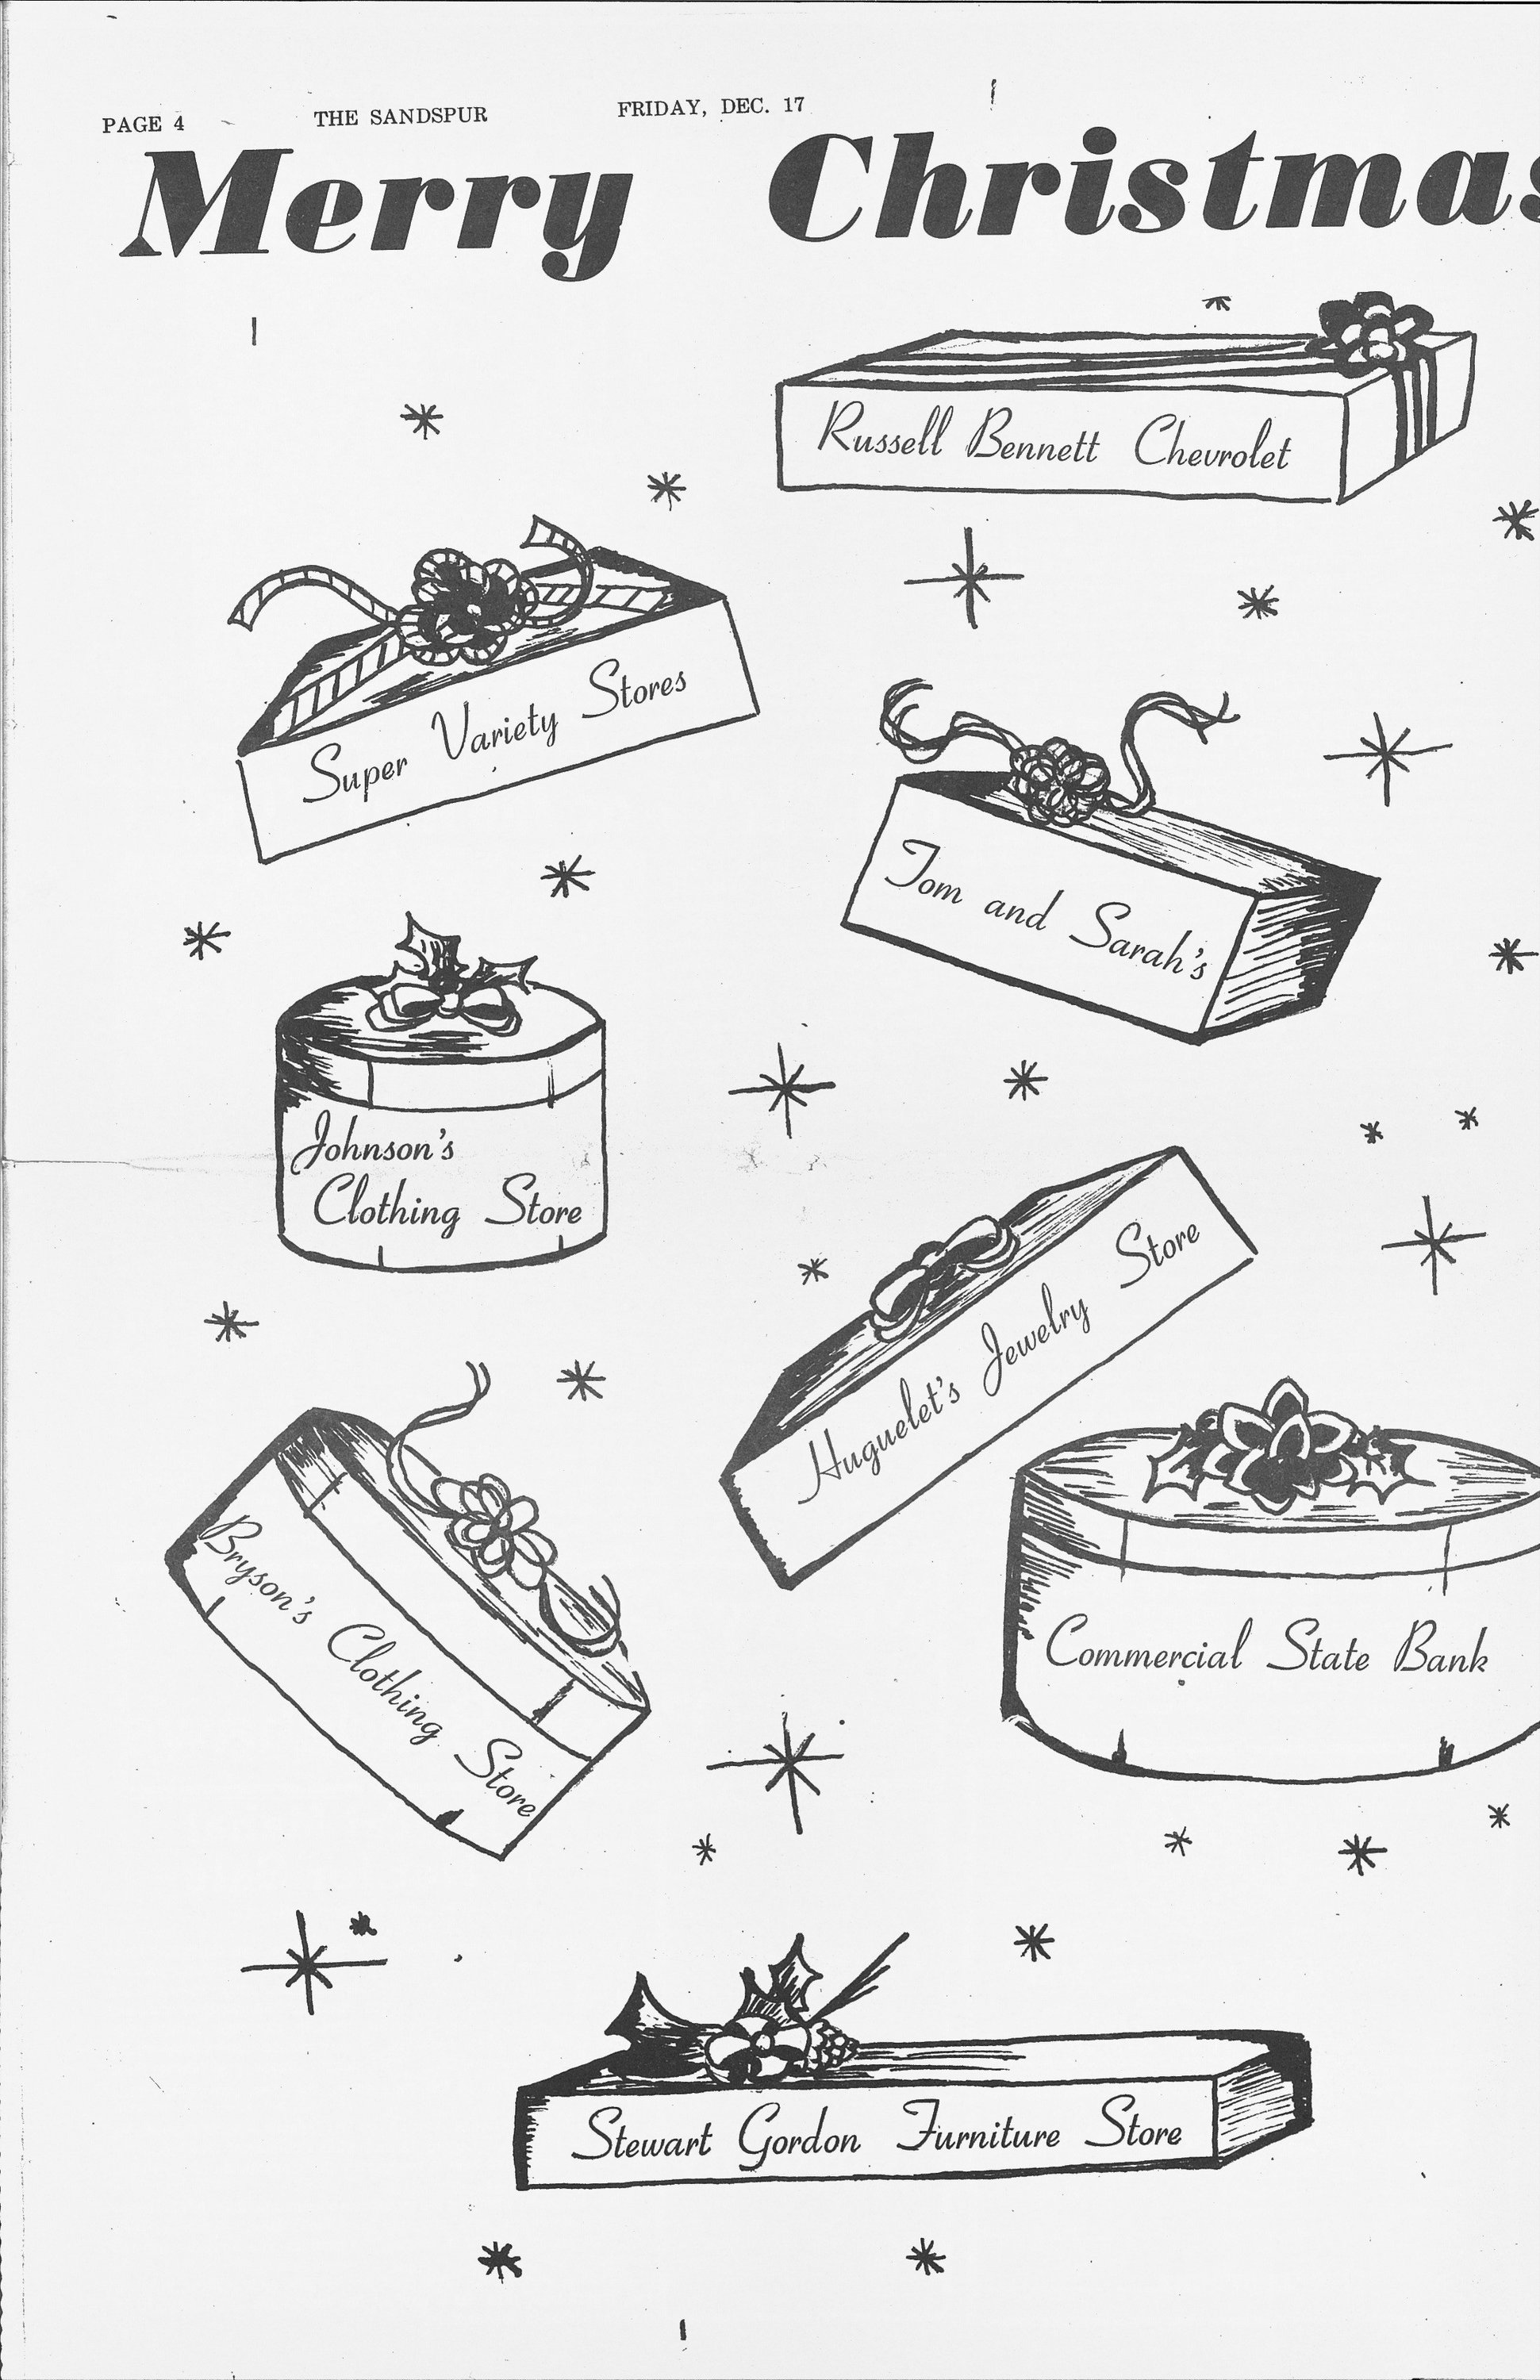 PAGE 4 THE SANDSPUR FRIDAY, DEC. 17
Merry Christmas
Russell Bennett Chevrolet
Super Variety Stores
Tom and Sarah's
Johnson's
Clothing Store
Huguelet's Jewelry Store
Bryson's Clothing Store
Commercial State Bank
Stewart Gordon Furniture Store